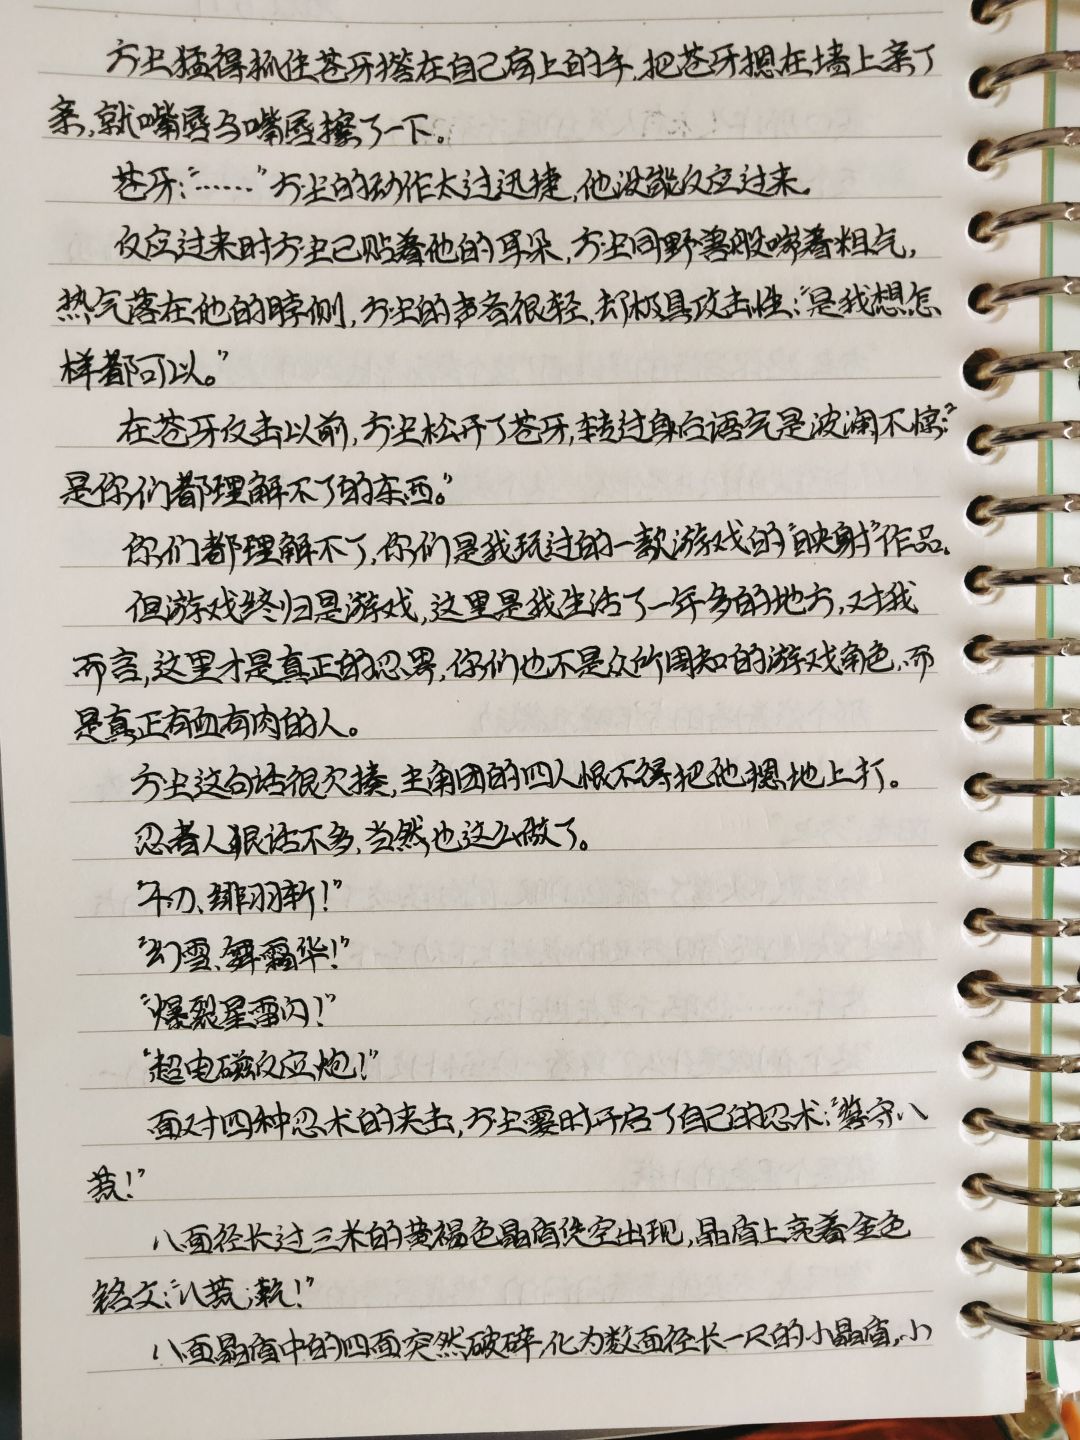 方尘猛得抓住苍牙搭在自己肩上的手,把苍牙摁在墙上亲了
亲,就嘴唇与嘴唇擦了一下。
苍牙:“……”方尘的动作太过迅捷,他没能反应过来。
反应过来时方尘已贴着他的耳朵,方尘同野兽般喘着粗气,
热气落在他的脖侧,方尘的声音很轻,却极具攻击性:“是我想怎
样都可以。”
在苍牙反击以前,方尘松开了苍牙,转过身后语气是波澜不惊:“
是你们都理解不了的东西。”
你们都理解不了,你们是我玩过的一款游戏的“映射”作品。
但游戏终归是游戏,这里是我生活了一年多的地方,对我
而言,这里才是真正的忍界,你们也不是众所周知的游戏角色,而
是真正有血有肉的人。
方尘这句话很欠揍,主角团的四人恨不得把他摁地上打。
忍者人狠话不多,当然也这么做了。
“千刃、绯羽斩!”
“幻雪、舞霜华!”
“爆裂星雷闪!”
“超电磁反应炮!”
面对四种忍术的夹击,方尘霎时开启了自己的忍术:“磐守八
荒!”
八面径长过三米的黄褐色晶盾凭空出现,晶盾上亮着金色
铭文:“八荒,乾!”
八面晶盾中的四面突然破碎,化为数面径长一尺的小晶盾,小